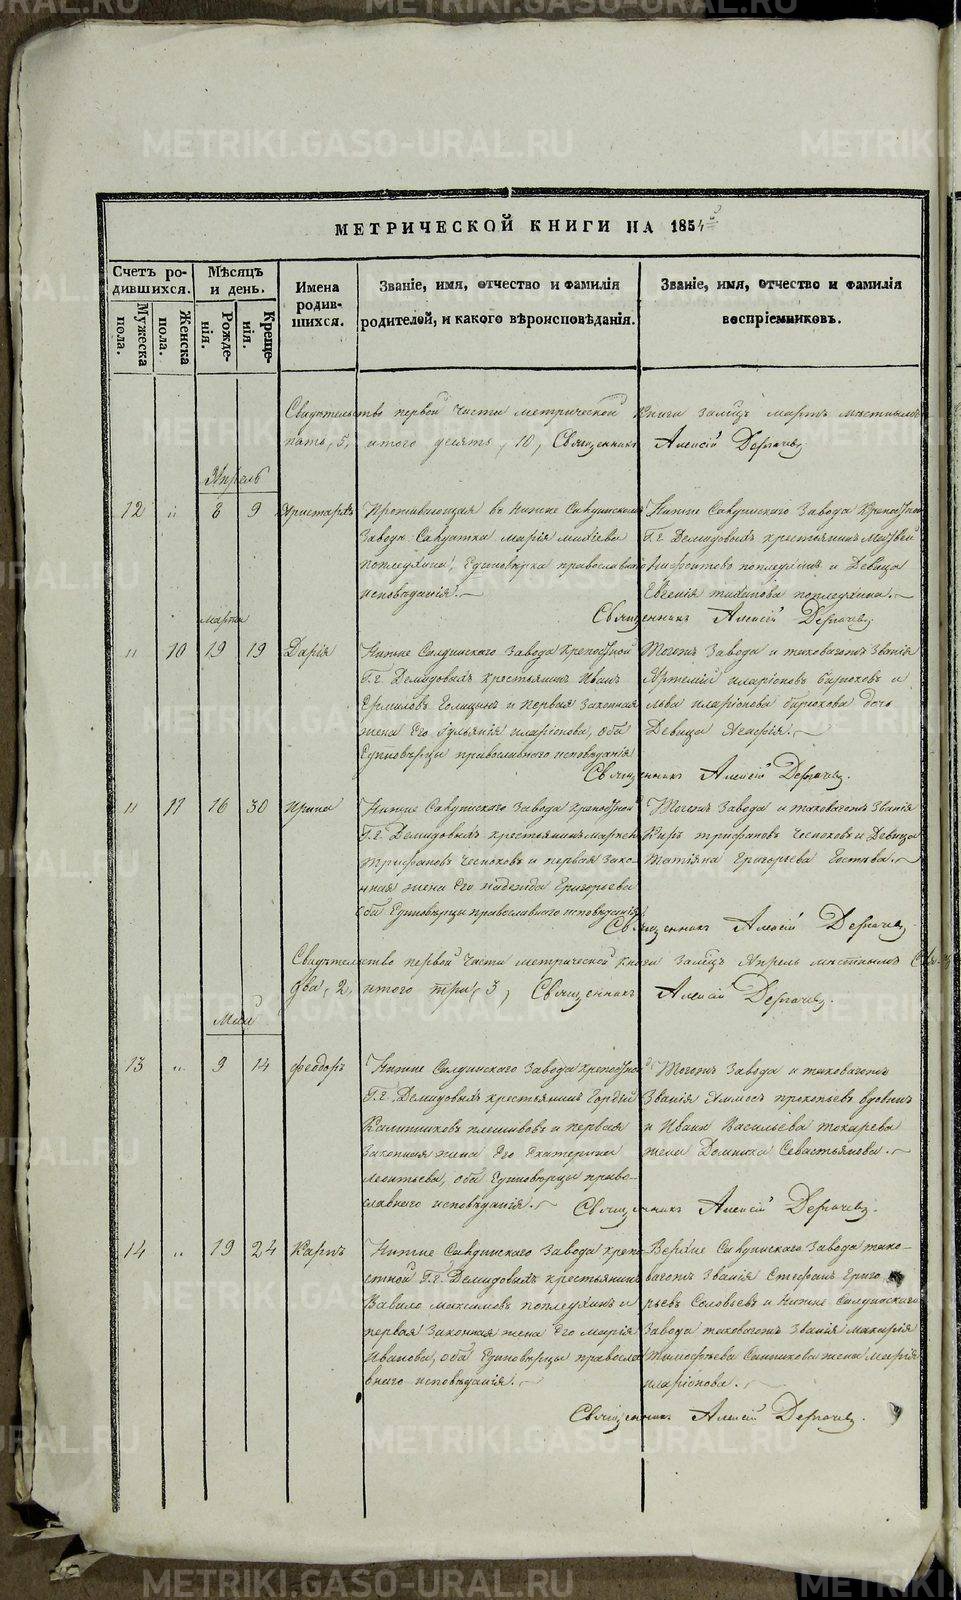 МЕТРИЧЕСКОЙ КНИГИ НА 1854
Счетъ ро-
дившихся.
Мужеска
пола.
Женска
пола.
Мѣсяцъ
и день.
Рожде-
нія.
Креще-
нія.
Имена
родив-
шихся.
Званіе, имя, отчество и фамилія
родителей, и какого вѣроисповѣданія.
Званіе, имя, отчество и фамилія
воспріемниковъ.
Свидѣтельство первой части метрической книги за мцъ мартъ
пять, 5, итого десять, 10, Священникъ Алексій Дерягачевъ
Апрель
12 " 8 9 Аристархъ
Проживающая въ Нижне Салдинскомъ
Завода Солдатка марія
Единовѣрка православнаго
исповѣданія.
Нижне Салдинскаго Завода Крепостной
Г.г. Демидовыхъ крестьянинъ Матвей
и Девица
Евгенія
Священникъ Алексій
марта
" 10 19 19 Дарія
Нижне Салдинскаго Завода Крепостной
Г.г. Демидовыхъ крестьянинъ Иванъ
Ермиловъ Голицинъ и Первая Законная
жена Его Іульянія иларіонова, оба
Единовѣрцы православнаго исповѣданія
Тогожъ Завода и таковагожъ Званія
Артемій иларіоновъ бирюковъ и
Льва иларіонова бирюкова дочь
Девица Агафія.
Священникъ Алексій
" 11 16 30 Ирина
Нижне Салдинскаго Завода Крепостной
Г.г. Демидовыхъ крестьянинъ
Трифановъ Чесноковъ и первая Зако-
нная жена Его надежда Григорьева
оба Единовѣрцы православнаго исповѣданія
Тогожъ Завода и таковагожъ Званія
Киръ трифановъ Чесноковъ и Девица
Татіяна Григорьева
Священникъ Алексій
Свидѣтельство первой части метрической книги за мцъ Апрель
два, 2, итого три, 3, Священникъ Алексій
Маій
13 " 9 14 Феодоръ
Нижне Салдинскаго Завода крепостной
Г.г. Демидовыхъ крестьянинъ Гордей
Калинниковъ плешивовъ и первая
Законная жена Его Екатерина
леонтьева, оба Единовѣрцы право-
славнаго исповѣданія.
Тогожъ Завода и таковагожъ
Званія Аммосъ прокопьевъ
и Ивана Васильева токарева
жена Домника Севастьянова.
Священникъ Алексій
14 " 19 24 Карпъ
Нижне Салдинскаго Завода крепо-
стной Г.г. Демидовыхъ крестьянинъ
Вавило максимовъ и
первая Законная жена Его марія
Иванова, оба Единовѣрцы правосла-
внаго исповѣданія.
Верхне Салдинскаго Завода тако-
вагожъ Званія Стефанъ Григо-
рьевъ Соловьевъ и Нижне Салдинскаго
Завода таковагожъ Званія Макарія
тимофѣева жена марія
иларіонова.
Священникъ Алексій
METRIKI.GASO-URAL.RU